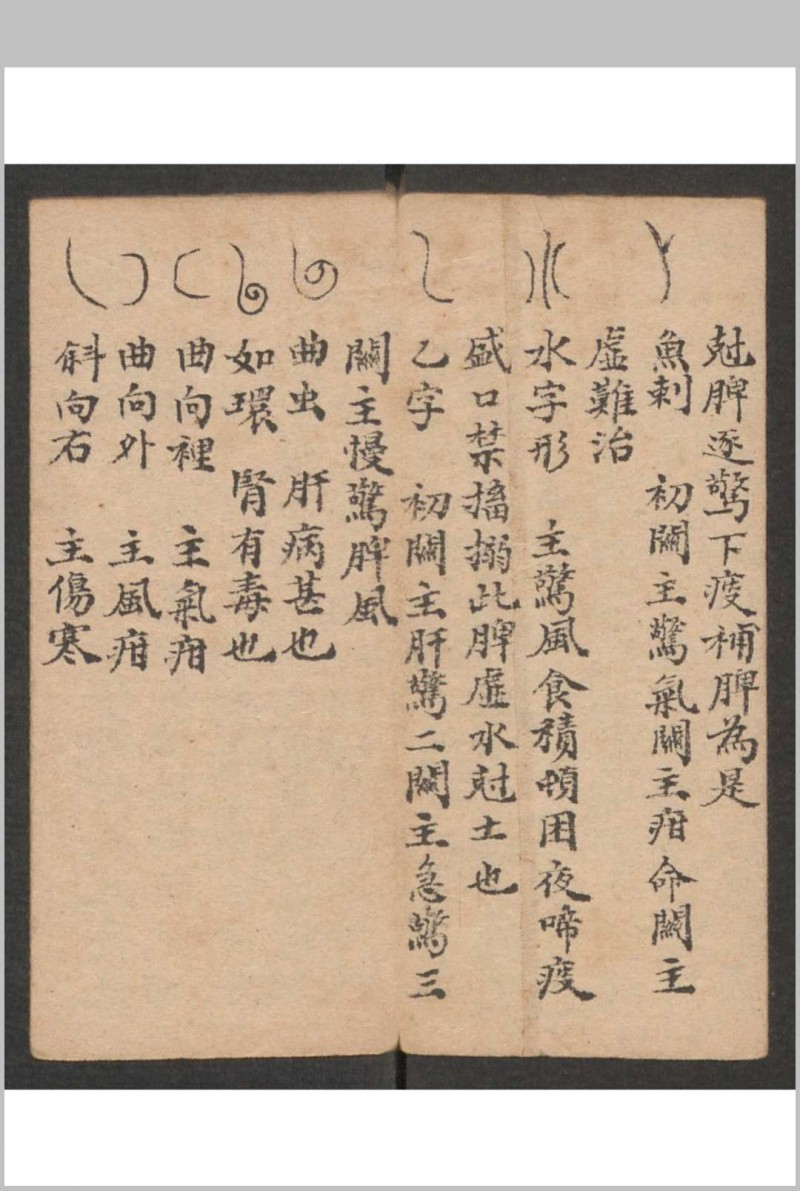 尅脾逐驚下痰補脾為是
魚刺 初關主驚氣關主疳命關主
虛難治
水字形 主驚風食積頓困夜啼痰
盛口禁搐搦此脾虛水尅土也
乙字 初關主肝驚二關主急驚三
關主慢驚脾風
曲虫 肝病甚也
如環 腎有毒也
曲向裡 主氣疳
曲向外 主風疳
斜向右 主傷寒